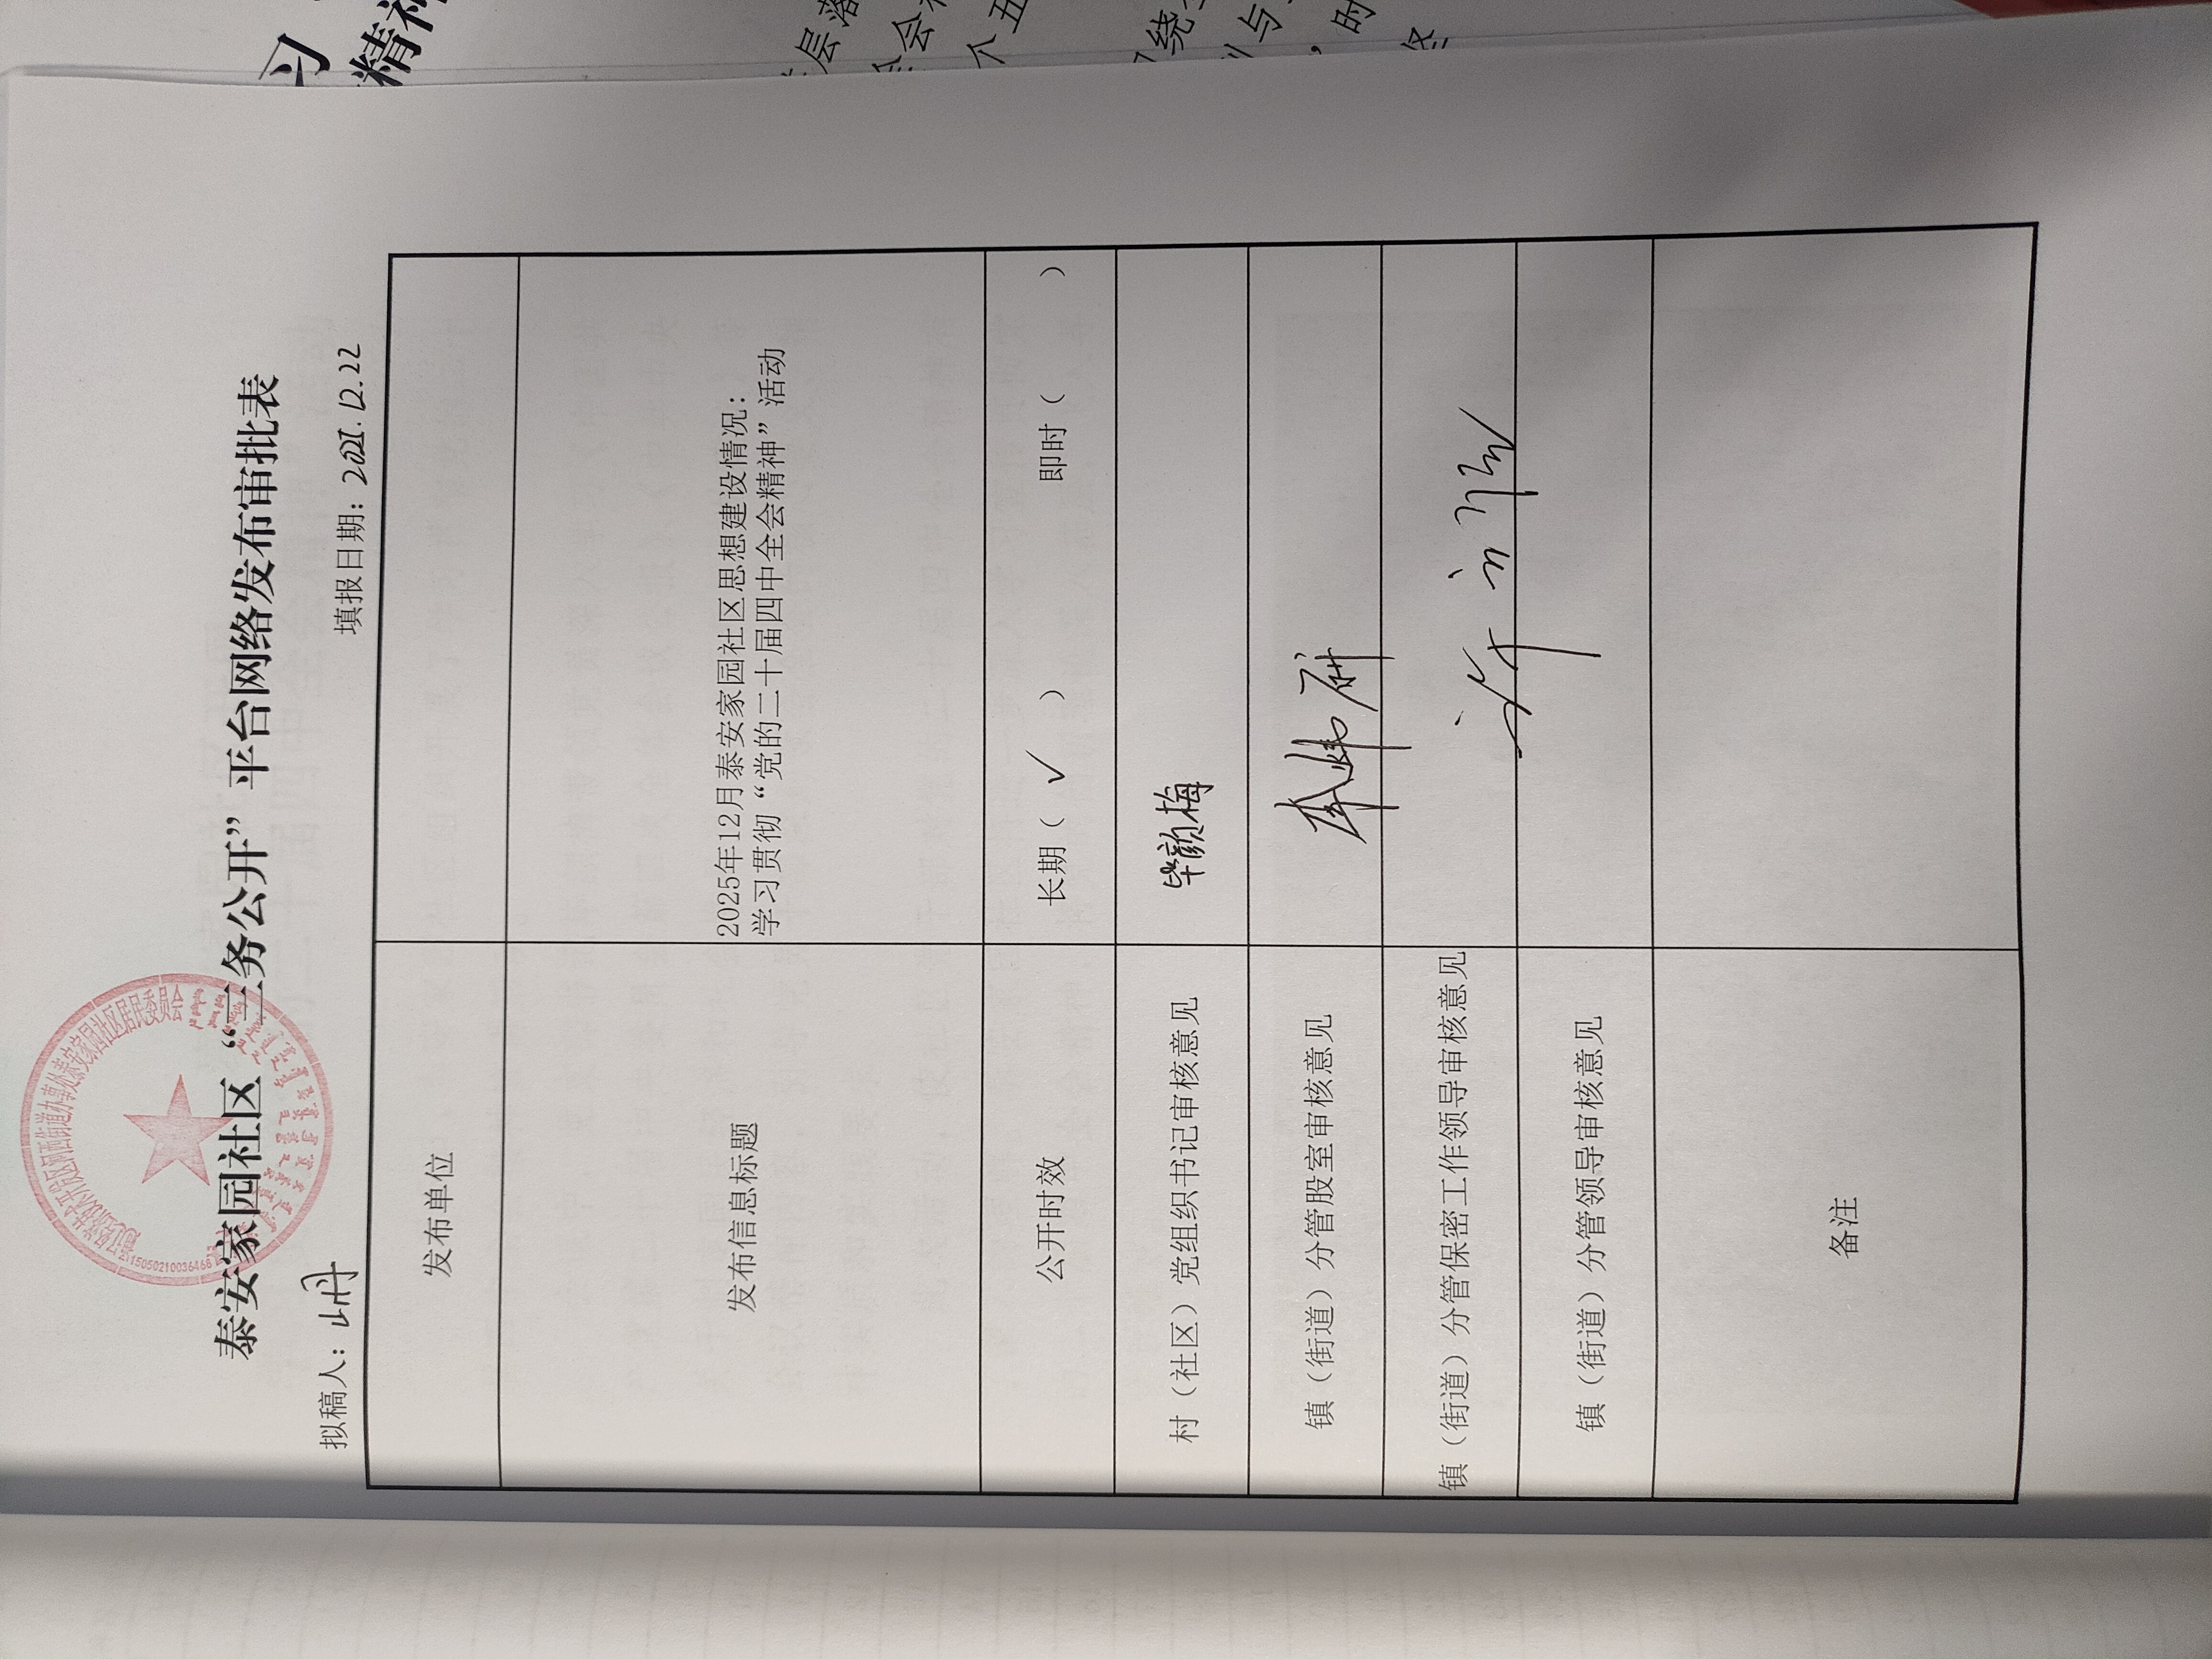 泰安家园社区“三务公开”平台网络发布审批表
拟稿人：山丹 填报日期：2025.12.22
发布单位
发布信息标题
2025年12月泰安家园社区思想建设情况：
学习贯彻“党的二十届四中全会精神”活动
公开时效 长期（ ✓ ） 即时（ ）
村（社区）党组织书记审核意见 毕颜梅
镇（街道）分管股室审核意见
镇（街道）分管保密工作领导审核意见
镇（街道）分管领导审核意见
备注
1505021003646
习
精神